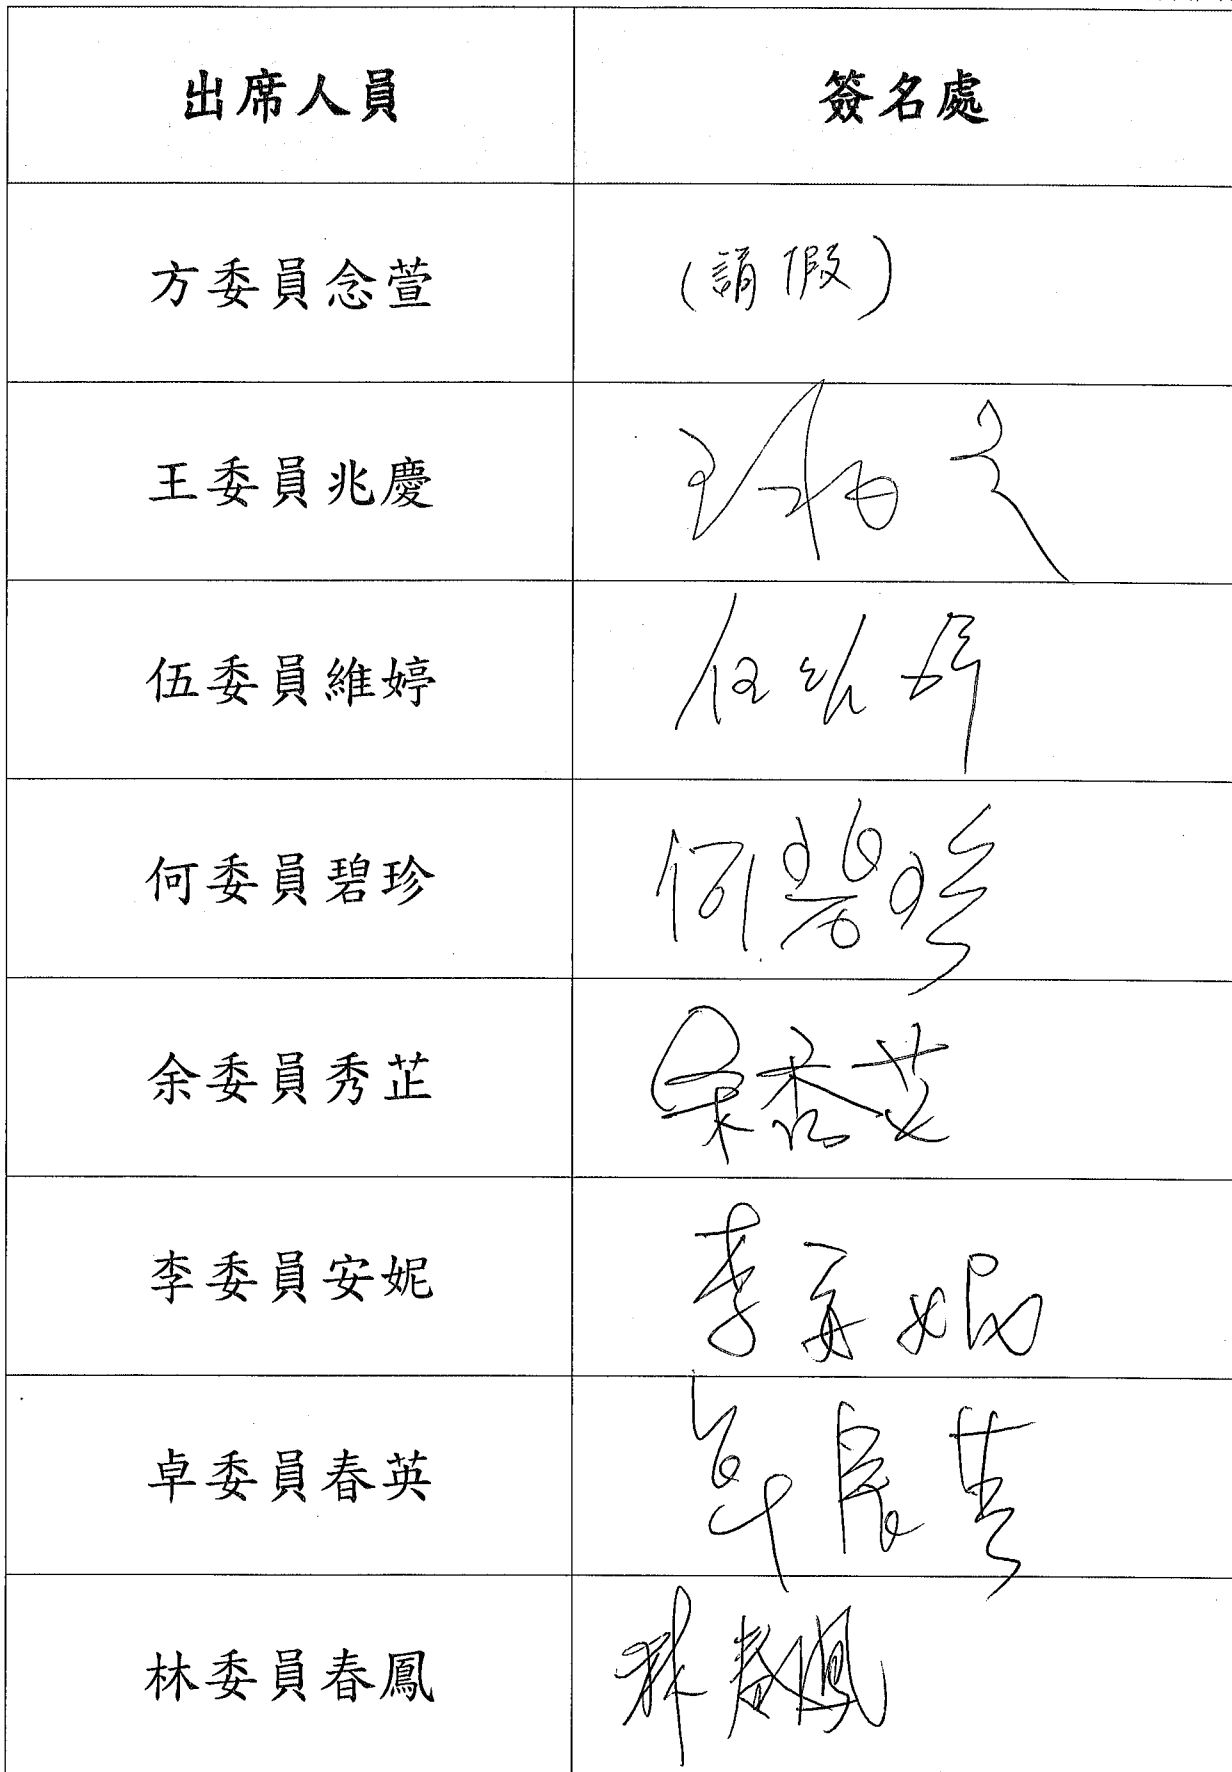 出席人員 簽名處
方委員念萱 (請假)
王委員兆慶
伍委員維婷
何委員碧珍 何碧珍
余委員秀芷 余秀芷
李委員安妮 李安妮
卓委員春英 卓春英
林委員春鳳 林春鳳